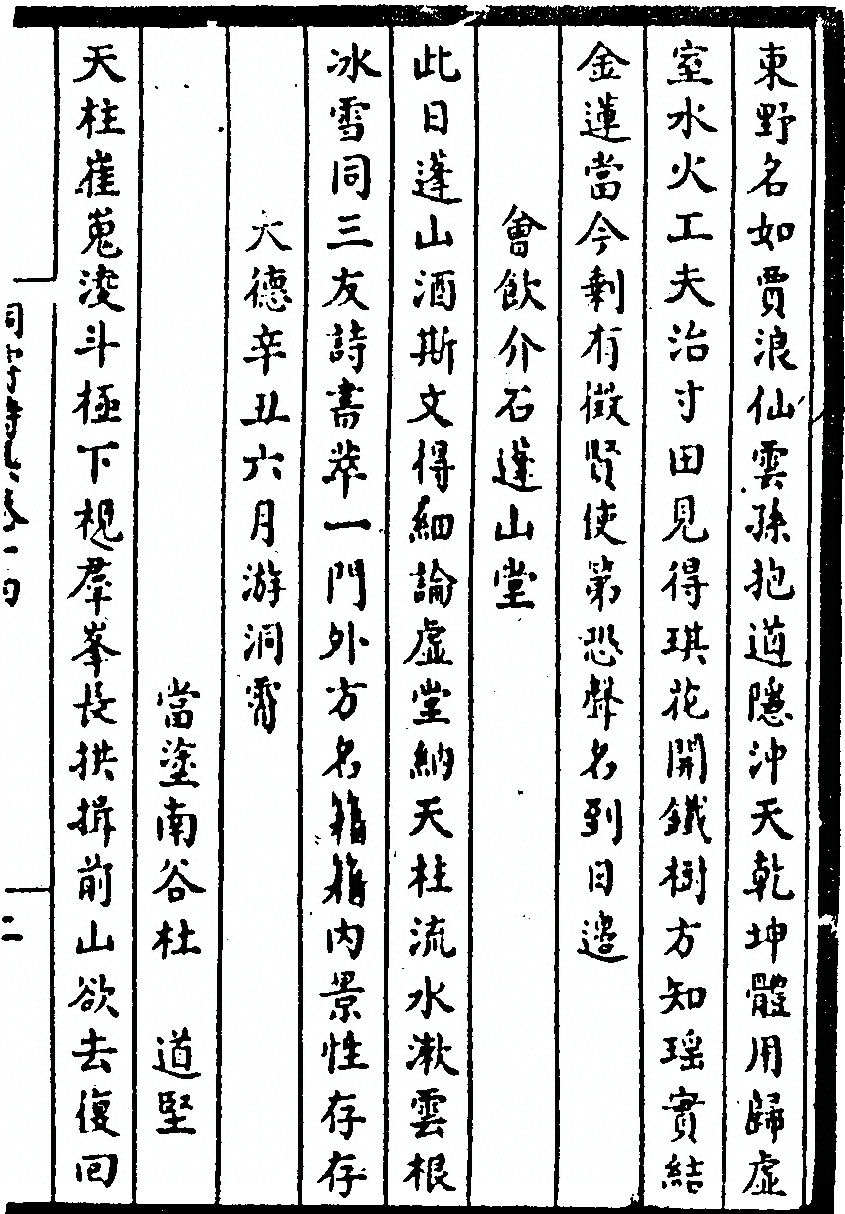 東野名如賈浪仙雲孫抱道隱沖天乾坤體用歸虛
室水火工夫治寸田見得琪花開鐵樹方知瑶實結
金蓮當今剩有徵賢使第恐聲名到日邊
會飲介石蓬山堂
此日蓬山酒斯文得細論虛堂納天柱流水漱雲根
冰雪同三友詩書萃一門外方名籍籍內景性存存
大德辛丑六月游洞霄
當塗南谷杜　道堅
天柱崔嵬凌斗極下視羣峯長拱揖前山欲去復回
洞霄詩集卷十四
二